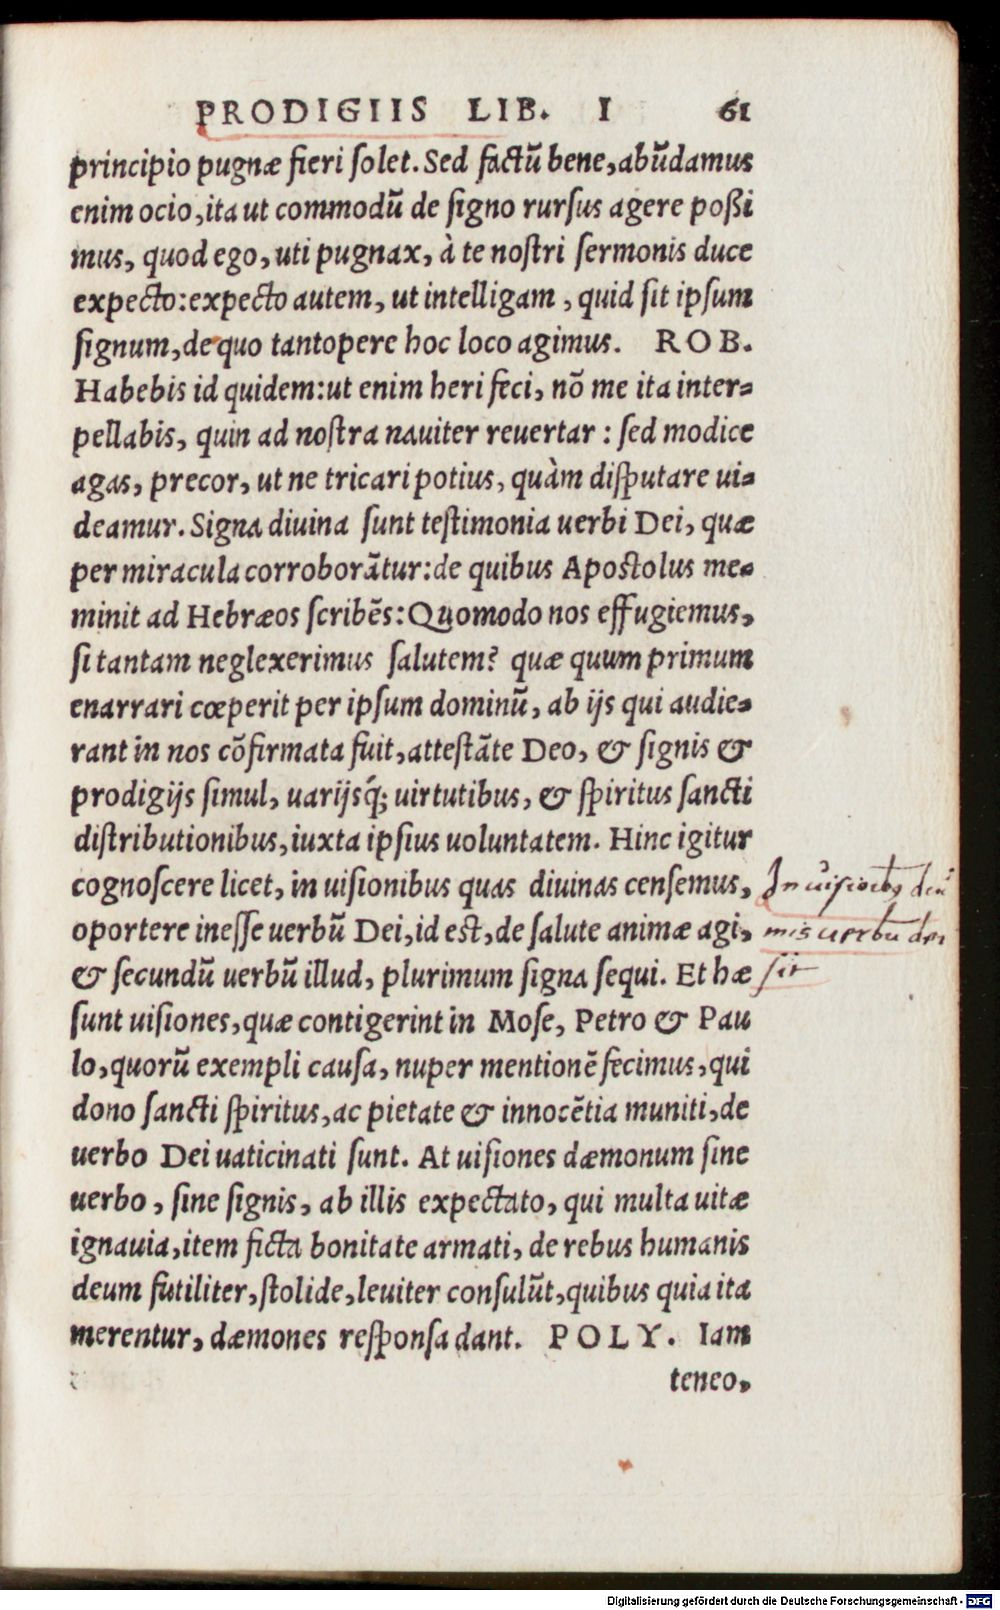 PRODIGIIS LIB. I 61
principio pugnæ fieri ſolet. Sed factū bene, abūdamus
enim ocio, ita ut commodū de ſigno rurſus agere poßi
mus, quod ego, uti pugnax, à te noſtri ſermonis duce
expecto: expecto autem, ut intelligam, quid ſit ipſum
ſignum, de quo tantopere hoc loco agimus. ROB.
Habebis id quidem: ut enim heri feci, nō me ita inter-
pellabis, quin ad noſtra nauiter reuertar: ſed modice
agas, precor, ut ne tricari potius, quàm diſputare ui-
deamur. Signa diuina ſunt teſtimonia uerbi Dei, quæ
per miracula corroborātur: de quibus Apoſtolus me-
minit ad Hebræos ſcribēs: Quomodo nos effugiemus,
ſi tantam neglexerimus ſalutem? quæ quum primum
enarrari cœperit per ipſum dominū, ab ijs qui audie-
rant in nos cōfirmata fuit, atteſtāte Deo, & ſignis &
prodigijs ſimul, uarijsq́; uirtutibus, & ſpiritus ſancti
diſtributionibus, iuxta ipſius uoluntatem. Hinc igitur
cognoſcere licet, in uiſionibus quas diuinas cenſemus,
oportere ineſſe uerbū Dei, id eſt, de ſalute animæ agi,
& ſecundū uerbū illud, plurimum ſigna ſequi. Et hæ
ſunt uiſiones, quæ contigerint in Moſe, Petro & Pau
lo, quorū exempli cauſa, nuper mentionē fecimus, qui
dono ſancti ſpiritus, ac pietate & innocētia muniti, de
uerbo Dei uaticinati ſunt. At uiſiones dæmonum ſine
uerbo, ſine ſignis, ab illis expectato, qui multa uitæ
ignauia, item ficta bonitate armati, de rebus humanis
deum futiliter, ſtolide, leuiter conſulūt, quibus quia ita
merentur, dæmones reſponſa dant. POLY. Iam
teneo,
In
uerbū dei
ſit
Digitalisierung gefördert durch die Deutsche Forschungsgemeinschaft - DFG